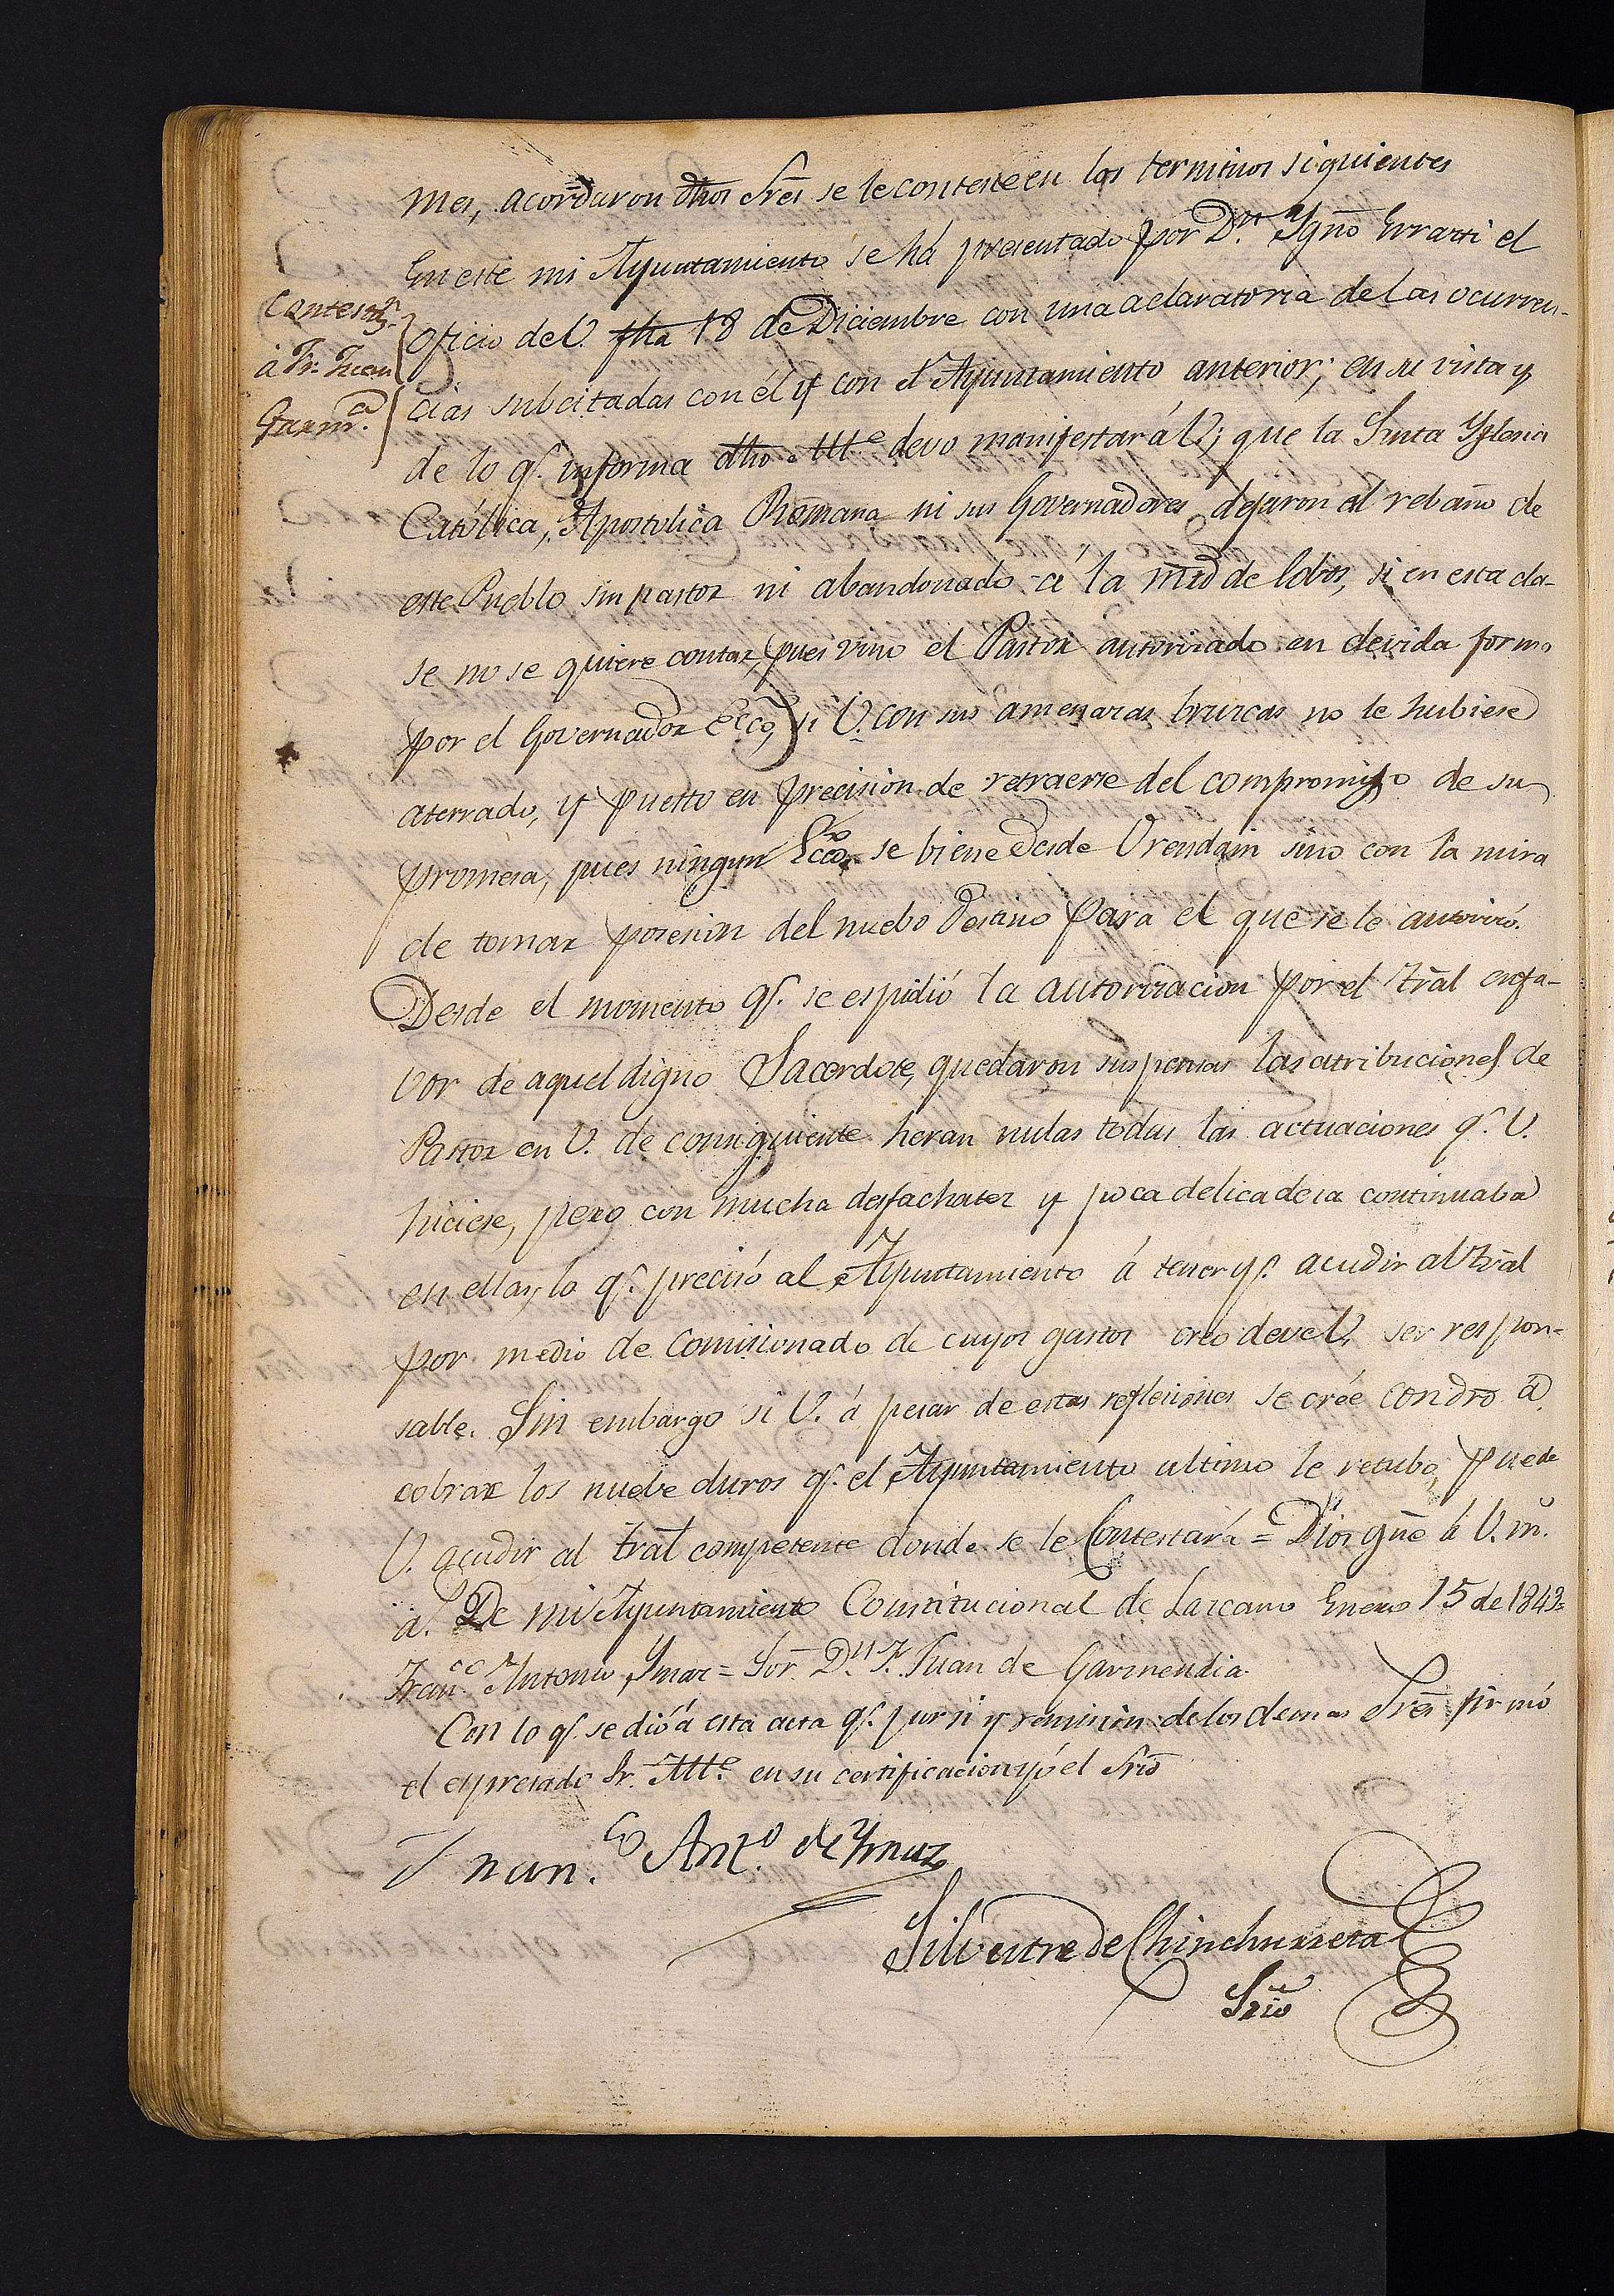 mes, acordaron dhos Sres se le conteste en los terminos siguientes
En este mi Ayuntamiento se há presentado por Dn. Ygno Errasti el
Contestn.
á Fr. Juan
Garmª.
oficio de V. fha 18 de Diciembre con una aclaratoria de las ocurren-
cias subcitadas con él y con el Ayuntamiento anterior; en su vista y
de lo q.e informa dho Alle. devo manifestar á V; que la Santa Yglesia
Católica, Apostolica Romana ni sus Governadores dejaron al rebaño de
este Pueblo sin pastor ni abandonado á la md de lobos, si en esta cla-
se no se quiere contar, pues vino el Pastor autorizado en devida forma
por el Governador Ecco, si V. con sus amenazas bruscas no le hubiese
aterrado, y puesto en precision de retraerse del compromiso de su
promesa, pues ningun Ecco se biene desde Orendain sino con la mira
de tomar posesion del nuebo destino para el que se le autorizó.
Desde el momento q.e se espidió la autorizacion por el Tral en fa-
vor de aquel digno Sacerdote, quedaron suspensas las atribuciones de
Pastor en V. de consiguiente heran nulas todas las actuaciones q.e V.
hiciese, pero con mucha desfachatez y poca delicadeza continuaba
en ellas, lo q.e precisó al Ayuntamiento á tener q.e acudir al Tral
por medio de Comisionado de cuyos gastos creo deve V. ser respon-
sable. Sin embargo si V. á pesar de estas reflesiones se crée con dro á
cobrar los nuebe duros q.e el Ayuntamiento ultimo le retubo, puede
V. acudir al tral competente donde se le Contestará = Dios gue á V. ms.
as. De mi Ayuntamiento Constitucional de Lazcano Enero 15 de 1843=
Franco. Antonio Ymaz = Sor. Dn. Fr. Juan de Garmendia.
Con lo q.e se dió á esta acta q.e por si y remision de los demas Sres firmó
el espresado Sr. Alle. en su certificacion yó el Srio
Fran.co Ant.o de Ymaz
Silvestre de Chinchurreta
Srio